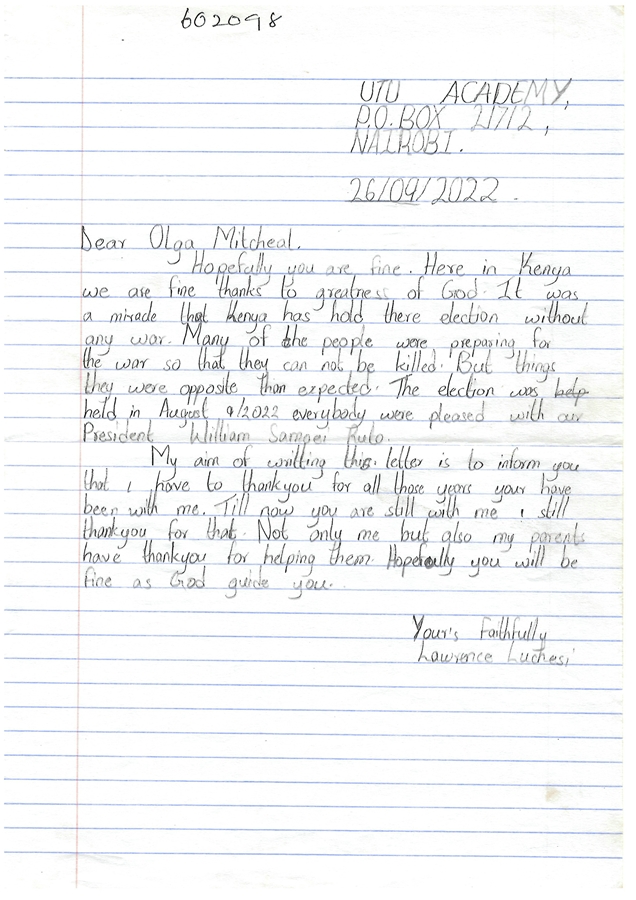 602098
UTU ACADEMY,
P.O. BOX 21712,
NAIROBI.
26/09/2022.
Dear Olga Mitcheal.
Hopefully you are fine. Here in Kenya
we are fine thanks to greatness of God. It was
a miracle that Kenya has hold there election without
any war. Many of the people were preparing for
the war so that they can not be killed. But things
they were opposite than expected. The election was help
held in August 9/2022 everybody were pleased with our
President William Samoei Ruto.
My aim of writting this letter is to inform you
that i have to thankyou for all those years your have
been with me. Till now you are still with me i still
thankyou for that. Not only me but also my parents
have thankyou for helping them. Hopefully you will be
fine as God guide you.
Your's Faithfully
Lawrence Luchesi